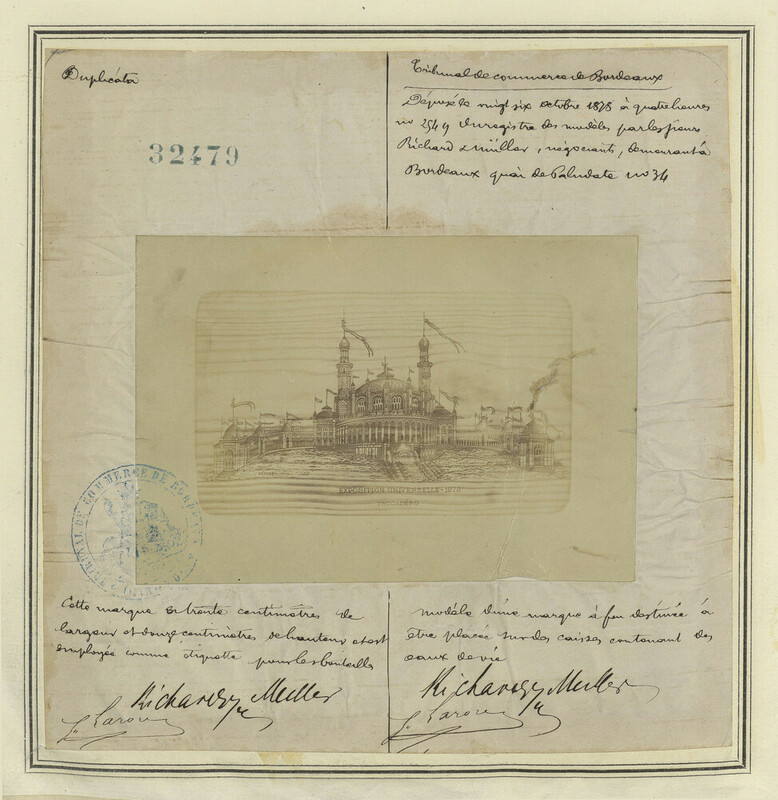 Duplicata
32479
Tribunal de commerce de Bordeaux
Déposé le vingt six octobre 1878 à quatre heures
no 2549 du registre des modèles par les sieurs
Richard & Müller, négociants, demeurant à
Bordeaux quai de Paludate no 34
EXPOSITION UNIVERSELLE - 1878
TROCADÉRO
TRIBUNAL DE COMMERCE DE BORDEAUX
Cette marque a trente centimètres de
largeur et douze centimètres de hauteur et est
employée comme étiquette pour les bouteilles
Richard & Muller
modèle d'une marque à feu destinée à
être placée sur des caisses contenant des
eaux de vie
Richard & Muller